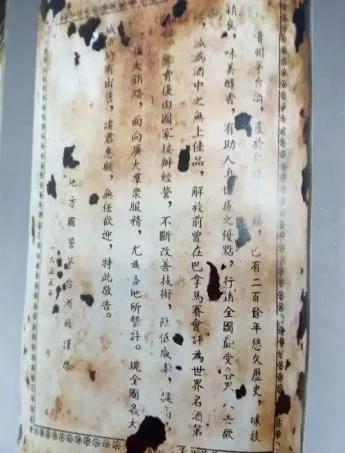 貴州茅台酒，產於仁鎮，已有二百餘年悠久歷史，釀技
精良，味美醇香，有助人身健康之優點，行銷全國頗受各界歡
誠為酒中之無上佳品，解放前曾在巴拿馬賽會評為世界名酒第
由國家接辦經營，不斷改善技術，降低成本，提
大銷路，面向廣大羣衆服務，尤為各地所讚許。現全國各大
有出售，諸君惠顧，無任歡迎，特此敬告。
地方國營茅台酒廠謹啓
一九五五年 月